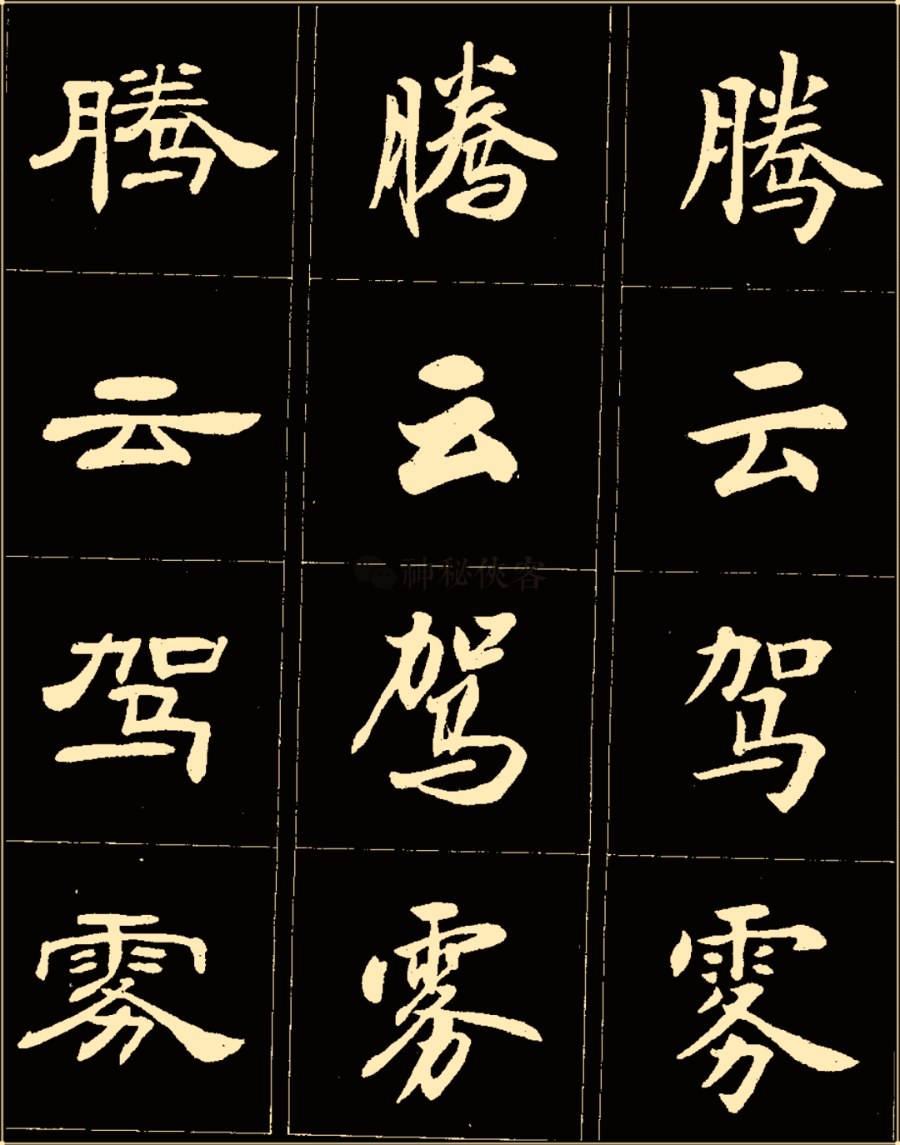 腾云驾雾
腾云驾雾
腾云驾雾
神秘侠客